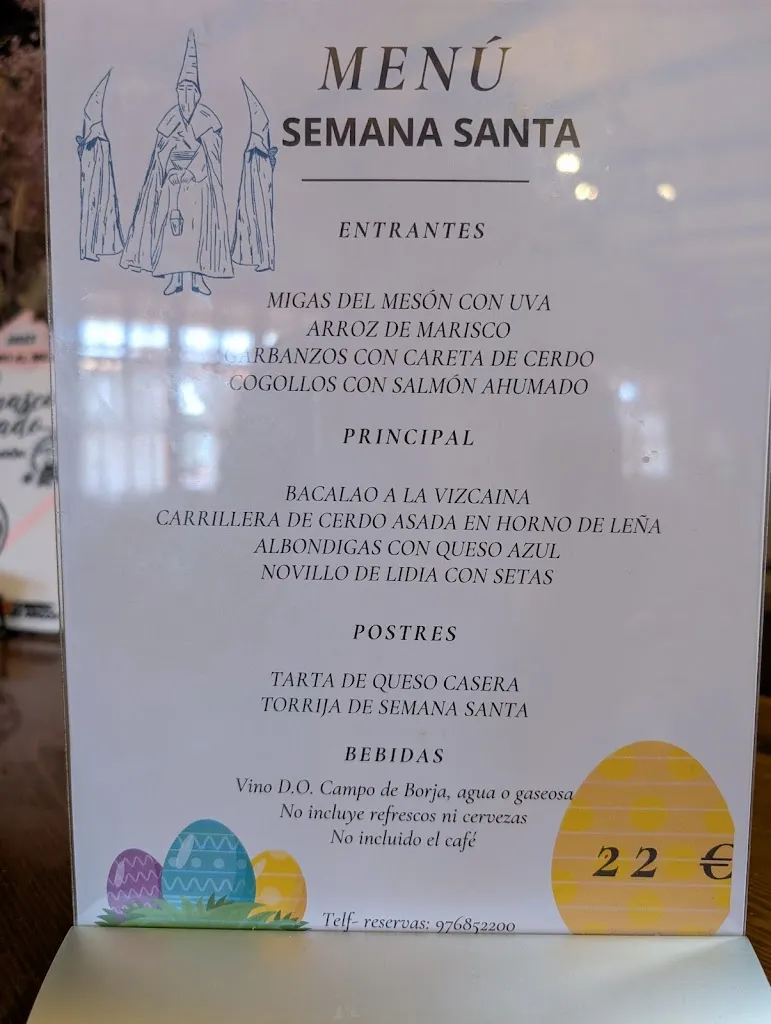 MENÚ
SEMANA SANTA
ENTRANTES
MIGAS DEL MESÓN CON UVA
ARROZ DE MARISCO
GARBANZOS CON CARETA DE CERDO
COGOLLOS CON SALMÓN AHUMADO
PRINCIPAL
BACALAO A LA VIZCAINA
CARRILLERA DE CERDO ASADA EN HORNO DE LEÑA
ALBONDIGAS CON QUESO AZUL
NOVILLO DE LIDIA CON SETAS
POSTRES
TARTA DE QUESO CASERA
TORRIJA DE SEMANA SANTA
BEBIDAS
Vino D.O. Campo de Borja, agua o gaseosa
No incluye refrescos ni cervezas
No incluido el café
22 €
Telf- reservas: 976852200